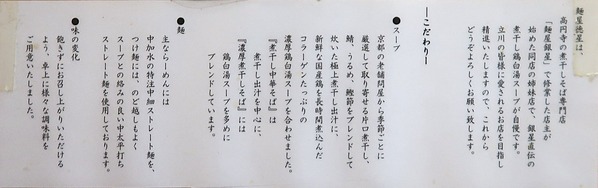 麺屋徳星は、
高円寺の煮干しそば専門店
「麺屋銀星」で修業した店主が
始めた同店の姉妹店で、銀星直伝の
煮干し鶏白湯スープが自慢です。
立川の皆様に愛されるお店を目指し
精進いたしますので、これから
どうぞよろしくお願い致します。
―こだわり―
●スープ
京都の老舗問屋から季節ごとに
厳選して取り寄せる中口煮干し、
鯖、うるめ、鰹節をブレンドして
炊いた極上煮干し出汁と、
新鮮な国産鶏を長時間煮込んだ
コラーゲンたっぷりの
濃厚鶏白湯スープを合わせました。
『煮干し中華そば』は
煮干し出汁を中心に、
『濃厚煮干しそば』には
鶏白湯スープを多めに
ブレンドしています。
●麺
主ならーめんには
中加水の特注中細ストレート麺を、
つけ麺には、のど越しもよく
スープとの絡みの良い中太平打ち
ストレート麺を使用しております。
●味の変化
飽きずにお召し上がりいただける
よう、卓上に様々な調味料を
ご用意いたしました。